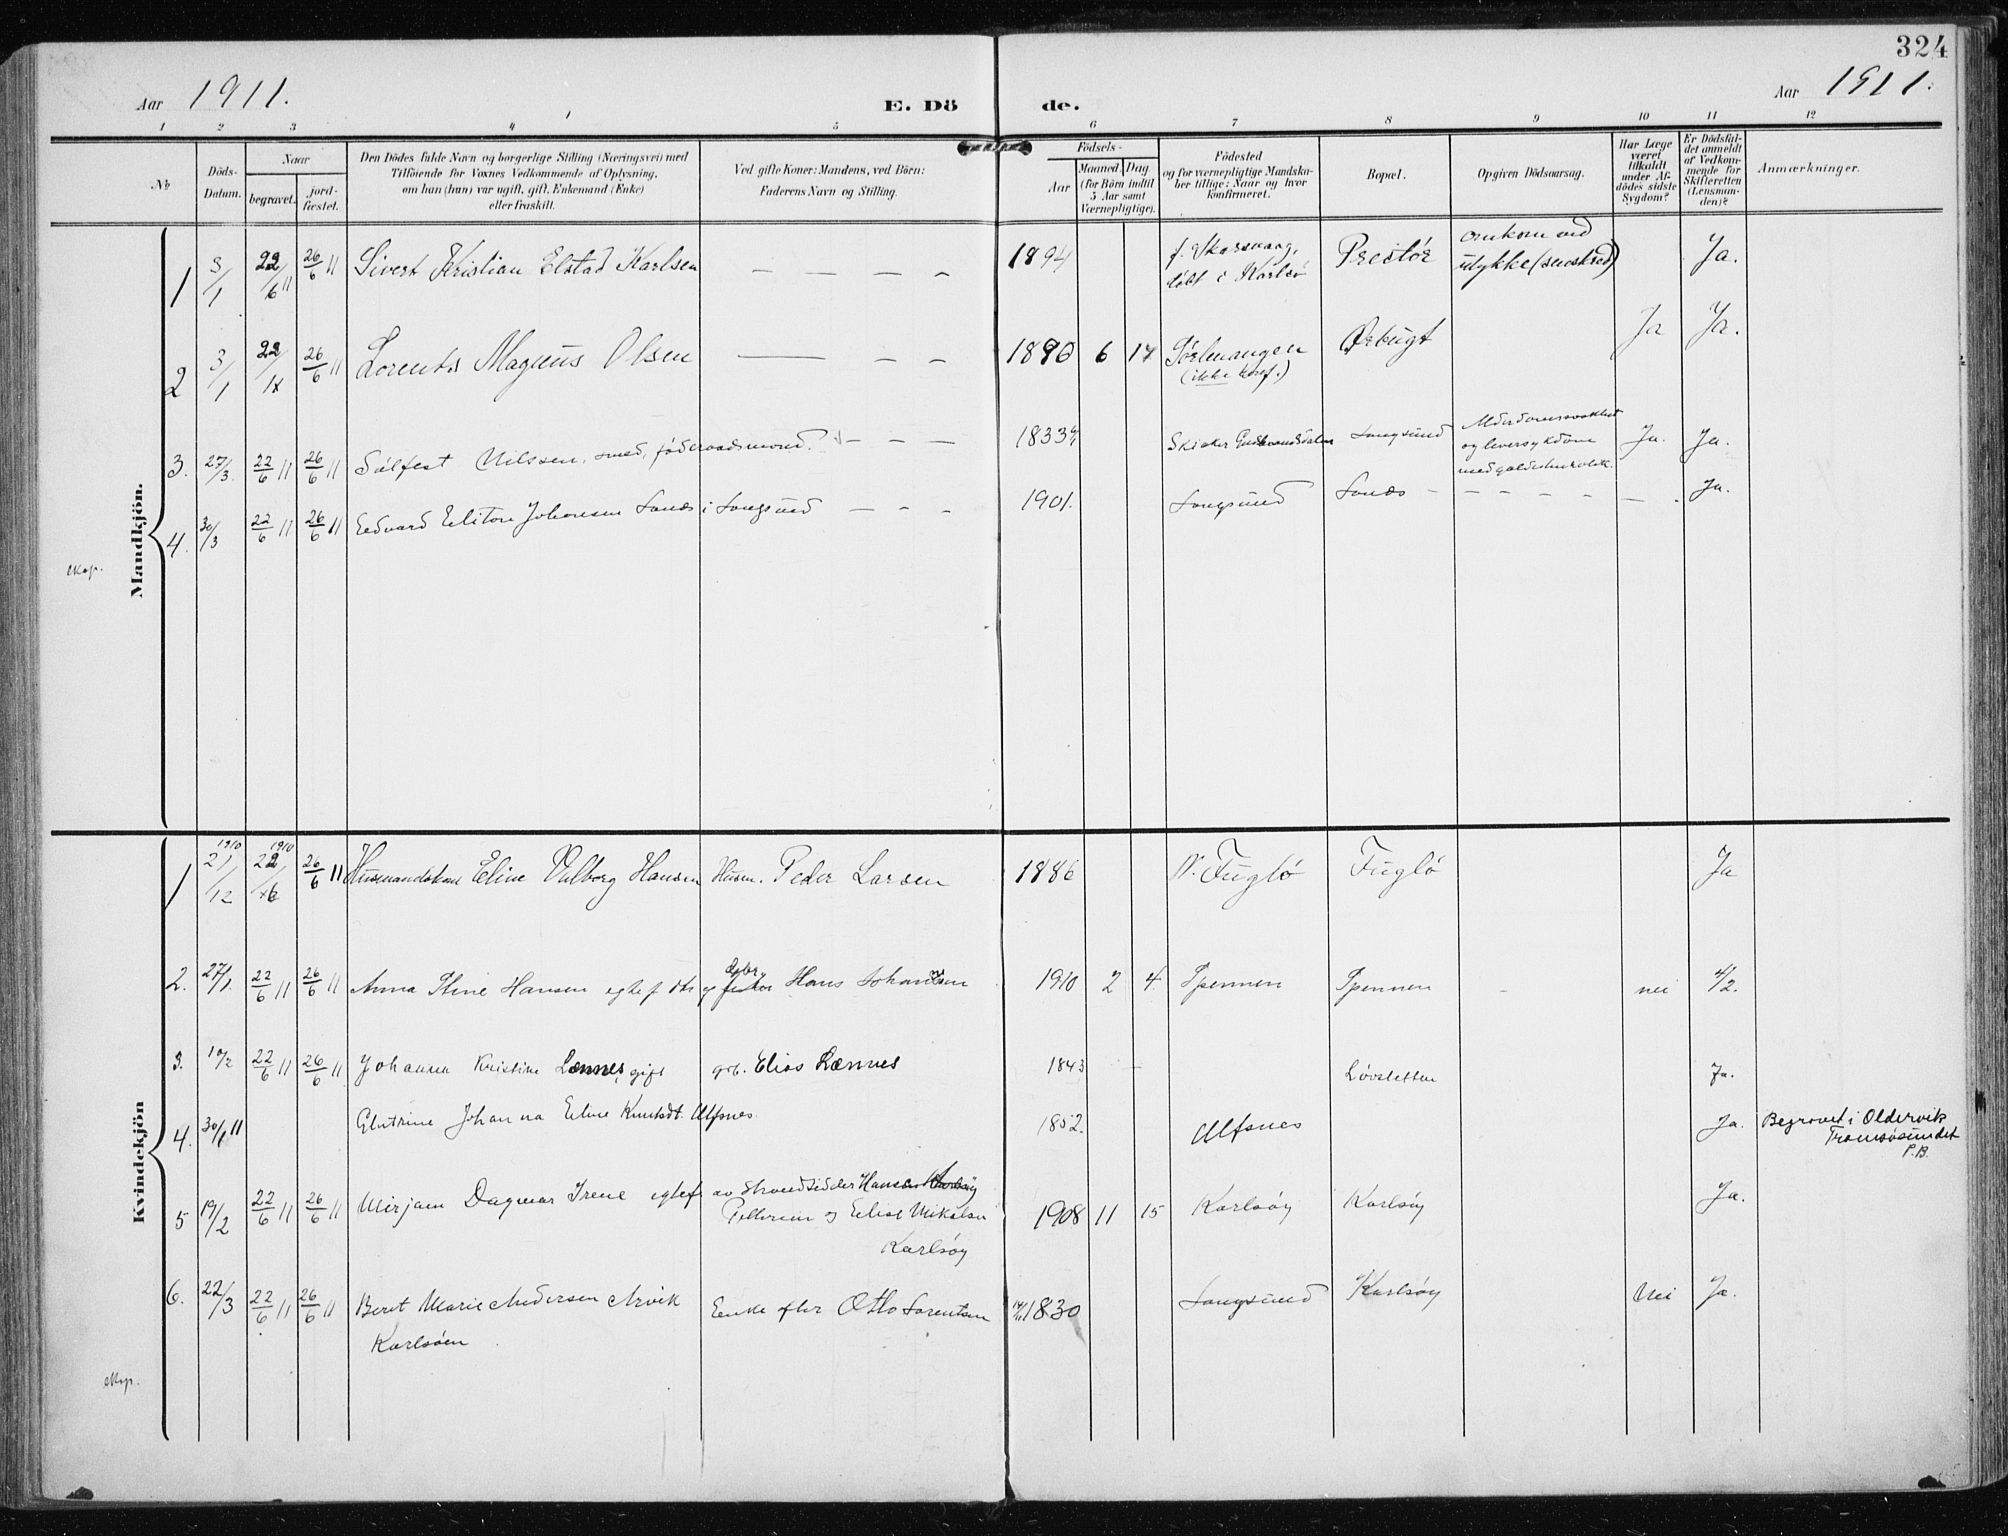 324
Aar 1911.
E. Dö de.
Aar 1911.
1 2 3 4 5 6 7 8 9 10 11 12
No
Döds-Datum.
Naar
begravet.
jord-fæstet.
Den Dödes fulde Navn og borgerlige Stilling (Næringsvei) med
Tilföiende for Voxnes Vedkommende af Oplysning,
om han (hun) var ugift, gift, Enkemand (Enke)
eller fraskilt.
Ved gifte Koner: Mandens, ved Börn:
Faderens Navn og Stilling.
Födsels-
Aar
Maaned. Dag
(for Börn indtil
5 Aar samt
Værnepligtige).
Födested
og for værnepligtige Mandska-
ber tillige: Naar og hvor
konfirmeret.
Bopæl.
Opgiven Dödsaarsag.
Har Læge
været
tilkaldt
under Af-
dödes sidste
Sygdom?
Er Dödsfal-
det anmeldt
af Vedkom-
mende for
Skifteretten
(Lensman-
den)?
Anmærkninger.
Mandkjön.
1 3/1 22/6 11 26/6 11 Sivert Kristian Elstad Karlsen — — — — 1894 f. Skarsvaag, döbt i Karlsö Prestör omkom ved ulykke (sneskred) Ja.
2 3/1 22/1x 26/6 11 Lorents Magnus Olsen — — — 1890 6 17 Sörlenangen (ikke konf.) Ørbugt Ja Ja.
3. 27/3 22/6 11 26/6 11 Sülfest Nilssen, smed, föderaadsmand. — — — 1833 Skiaker Gudbrandsdalen Langsund Alderdomssvakhet og leversykdom med Ja. Ja.
4. 30/3 22/6 11 26/6 11 Edvard Eliton Johansen Sanæs i Langsund — — — 1901. Langsund Sanæs — — — — — Ja.
ekop.
Kvindekjön
1 1910 21/12 1910 26/6 11 Husmandskone Eline Valborg Hansen Husm. Peder Larsen 1886 N. Fuglö Fuglö Ja
2. 27/1. 22/6 11 26/6 11 Anna Stine Hansen egtef. dtr. af gbr. fisker Hans Johansen 1910 2 4. Spennen Spennen nei 4/2.
3. 10/2 22/6 11 26/6 11 Johanna Kristine Lænnes, gift grb. Elias Lænnes 1843 — Lövsletten Ja.
4. 30/1 11 Elutrine Johanna Eline Knutsdt. Ulfsnes. 1852. Ulfsnes Ja. Begravet i Oldervik
Tromsösundet
P.B.
5 19/2 22/6 11 26/6 11 Mirjam Dagmar Irene egtef. av Strandsidder Hansen Karlsöy
Pettersen og Eelise Mikalsen
Karlsöy 1908 11 15 Karlsöy Karlsöy Ja.
6. 22/3 22/6 11 26/6 11 Beret Marie Andersen Arvik
Karlsöen Eenke efter Otto Lorentsen 14/11 1830 Langsund Karlsöy Nei Ja.
ekop.